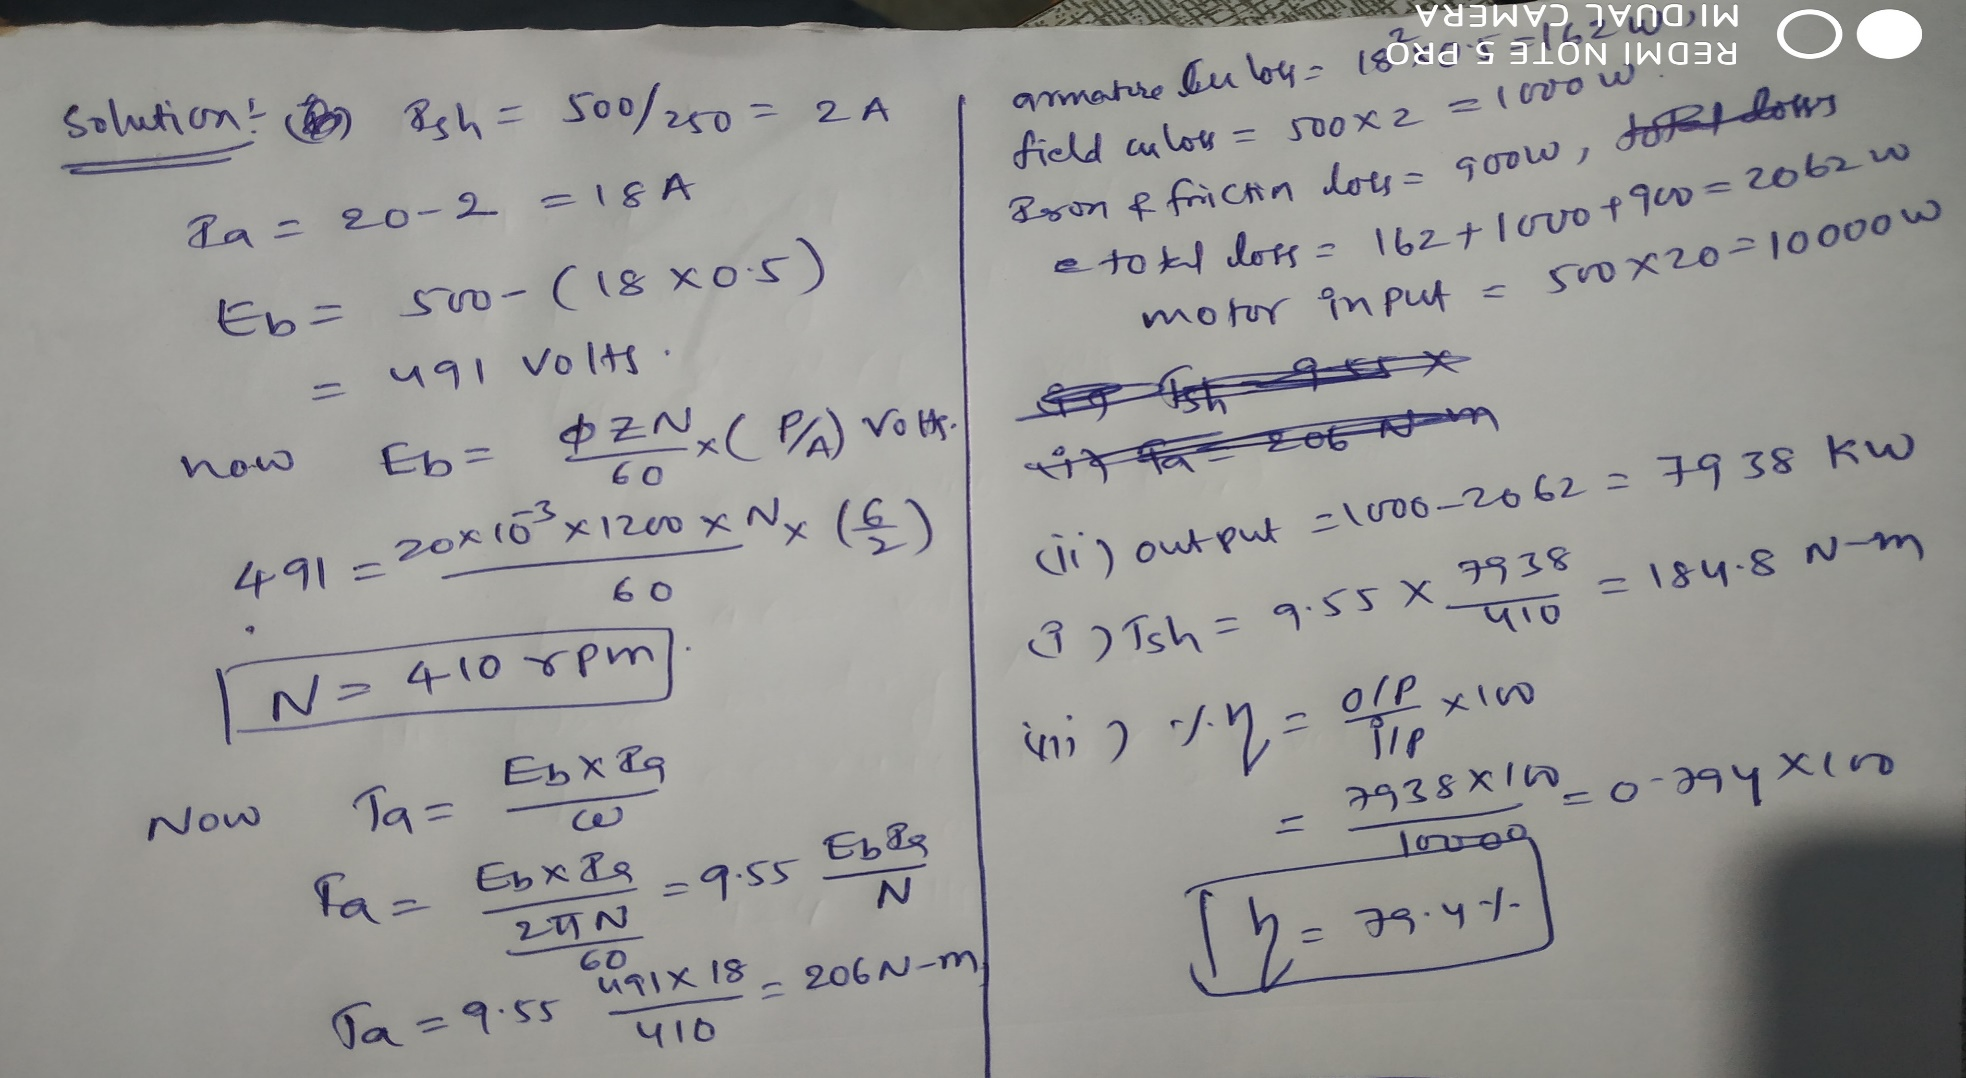 Solution:- Ish = 500/250 = 2 A
Ia = 20-2 = 18 A
Eb = 500-(18 x0.5)
= 491 volts.
now Eb = ϕZN/60 x (P/A) volts.
491 = 20x10^-3 x 1200 x N/60 x (6/2)
N = 410 rpm.
Now Ta = Eb x Ia/ω
Ta = Eb x Ia/(2πN/60) = 9.55 EbIa/N
Ta = 9.55 491x 18/410 = 206 N-m
armature cu loss = 18^2 x0.5 = 162 w.
field cu loss = 500x2 = 1000 w.
Iron & frictin loss = 900w, total losses
total loss = 162+1000+900 = 2062 w
motor input = 500x20 = 10000 w
Tsh = 9.55 x
(i) Ta = 206 N-m
(ii) output = 1000-2062 = 7938 KW
(i) Tsh = 9.55 x 7938/410 = 184.8 N-m
iii) %η = O/P/i/P x100
= 7938x100/10000 = 0.794 x100
η = 79.4%
REDMI NOTE 5 PRO
MI DUAL CAMERA